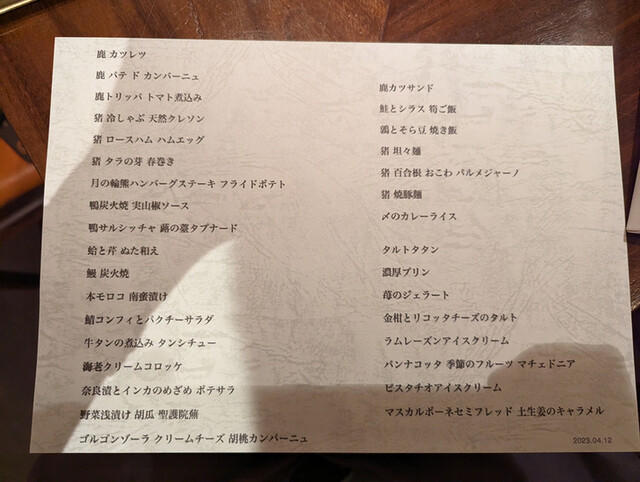 鹿 カツレツ
鹿 パテ ド カンパーニュ
鹿トリッパ トマト煮込み
猪 冷しゃぶ 天然クレソン
猪 ロースハム ハムエッグ
猪 タラの芽 春巻き
月の輪熊ハンバーグステーキ フライドポテト
鴨炭火焼 実山椒ソース
鴨サルシッチャ 蕗の薹タプナード
蛤と芹 ぬた和え
鰻 炭火焼
本モロコ 南蛮漬け
鯖コンフィとパクチーサラダ
牛タンの煮込み タンシチュー
海老クリームコロッケ
奈良漬とインカのめざめ ポテサラ
野菜浅漬け 胡瓜 聖護院蕪
ゴルゴンゾーラ クリームチーズ 胡桃カンパーニュ
鹿カツサンド
鮭とシラス 筍ご飯
鶏とそら豆 焼き飯
猪 坦々麺
猪 百合根 おこわ パルメジャーノ
猪 焼豚麺
〆のカレーライス
タルトタタン
濃厚プリン
苺のジェラート
金柑とリコッタチーズのタルト
ラムレーズンアイスクリーム
パンナコッタ 季節のフルーツ マチェドニア
ピスタチオアイスクリーム
マスカルポーネセミフレッド 土生姜のキャラメル
2023.04.12